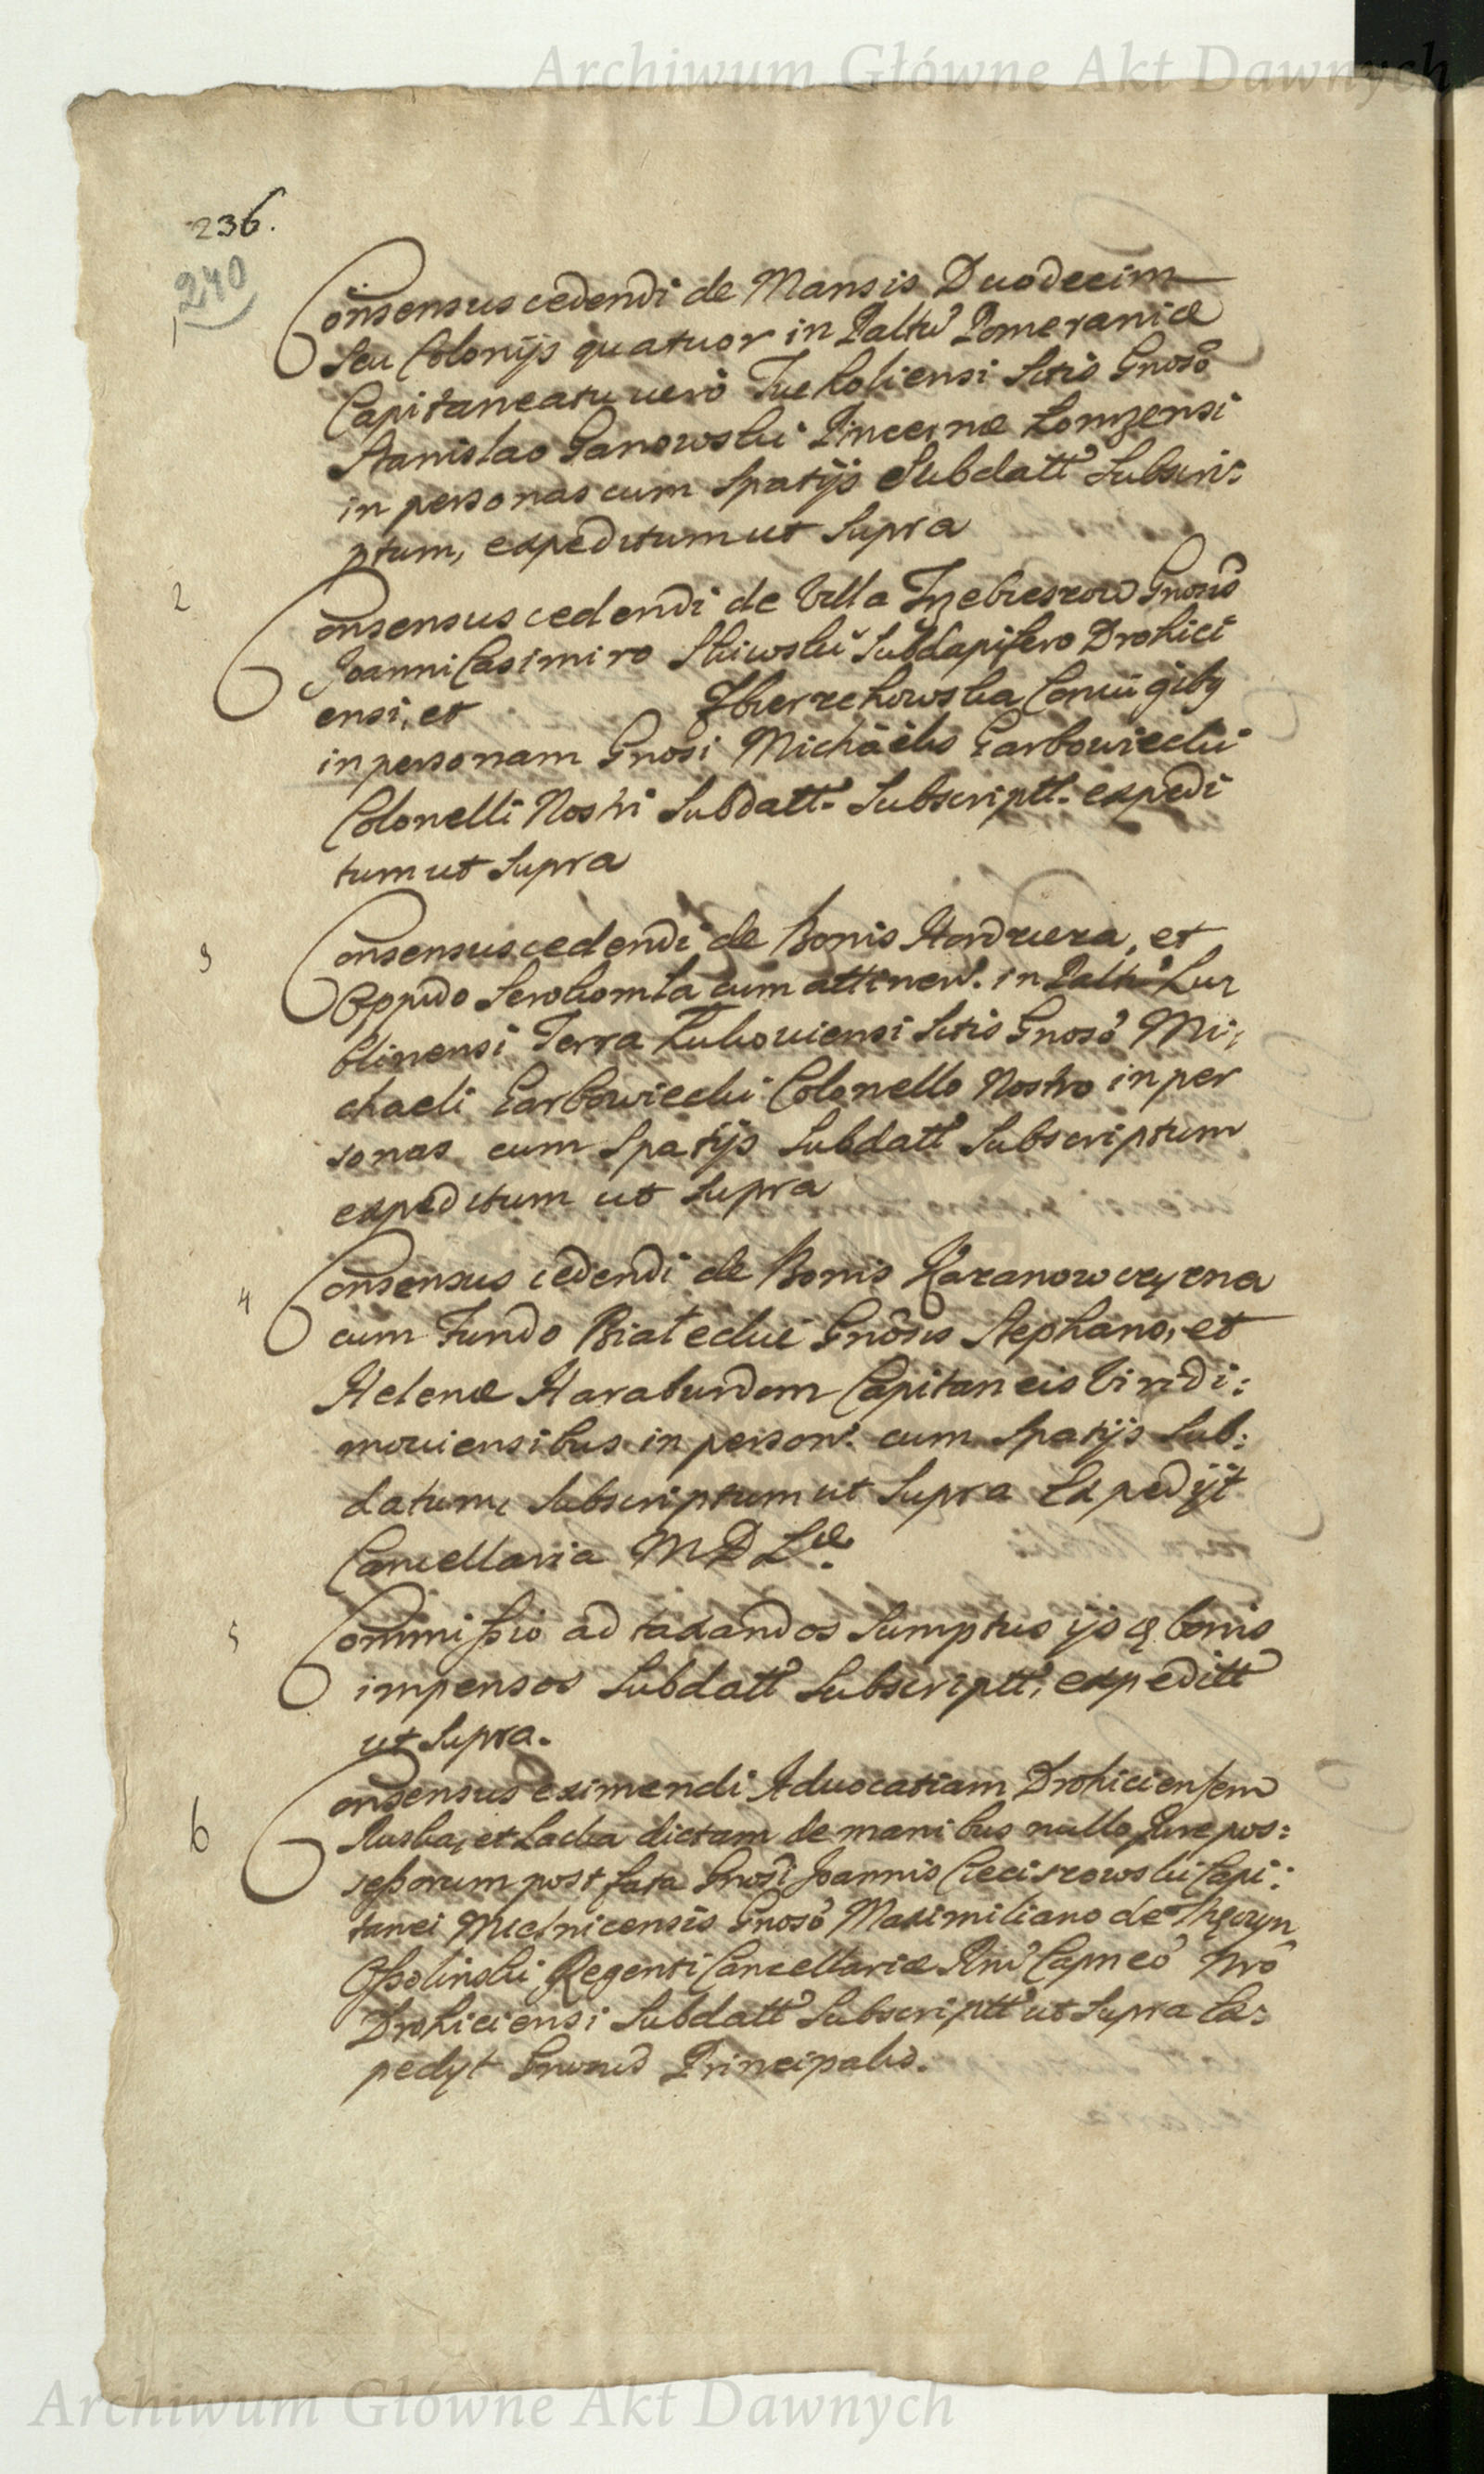 Archiwum Główne Akt Dawnych
236.
240
1
Consensus cedendi de Mansis Duodecim
seu Colonijs quatuor in Palttu Pomeraniæ
Capitaneatu vero Tucholiensi sitis Gnoso
Stanislao Ganowski Pincernæ Łomzensi
in personas cum spatijs Subdatt Subscri:
ptum, expeditum ut supra
2
Consensus cedendi de Villa Trzebieszow Gnosis
Joanni Casimiro Skiwski Subdapifero Drohici
ensi, et Zbierzchowska Coniugiby
in personam Gnosi Michäelis Garbowiecki
Colonelli Nostri Subdatt. Subscriptt. expedi
tum ut supra
3
Consensus cedendi de Bonis Hordzieza, et
Oppido Serokomla cum attinen. in Palttu Lu
blinensi Terra Łukoviensi sitis Gnoso Mi,
chaeli Garbowiecki Colonello Nostro in per
sonas cum spatijs subdatt subscriptum
expeditum ut supra
4
Consensus cedendi de Bonis Kazanowczyzna
cum Fundo Białecki Gnosis Stephano, et
Helenæ Haraburdom Capitaneis Viridi:
moviensibus in person. cum spatijs Sub:
datum, subscriptum ut supra Expedijt
Cancellaria M D L æ.
5
Commissio ad taxandos sumptus ijsq bonis
impensos subdatt subscriptt, expeditt
ut supra.
6
Consensus eximendi Advocatiam Drohiciensem
Ruska, et Lacka dictam de manibus nullo Jure pos:
sessorum post fata Gnosi Joannis Cieciszowski Capi:
tanei Mielnicensis Gnoso Maximiliano de Thęczyn
Ossolinski Regenti Cancellariæ Rni Capneo Nro
Drohiciensi Subdatt Subscriptt ut supra Ex:
pedijt Gnosus Principalis.
Archiwum Główne Akt Dawnych